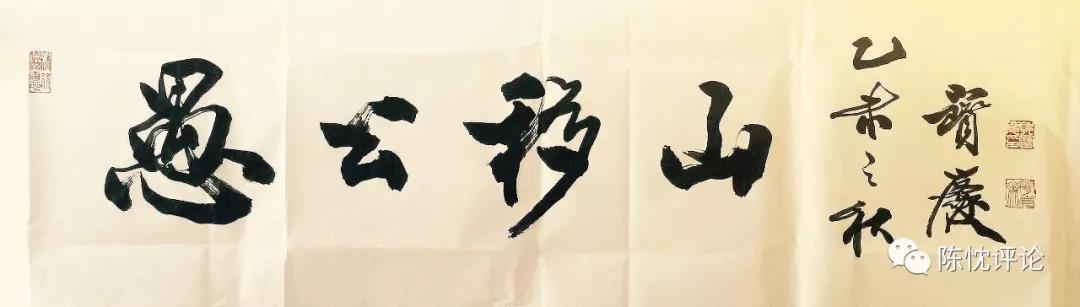 愚公移山
乙未之秋
寶慶
陈忱评论